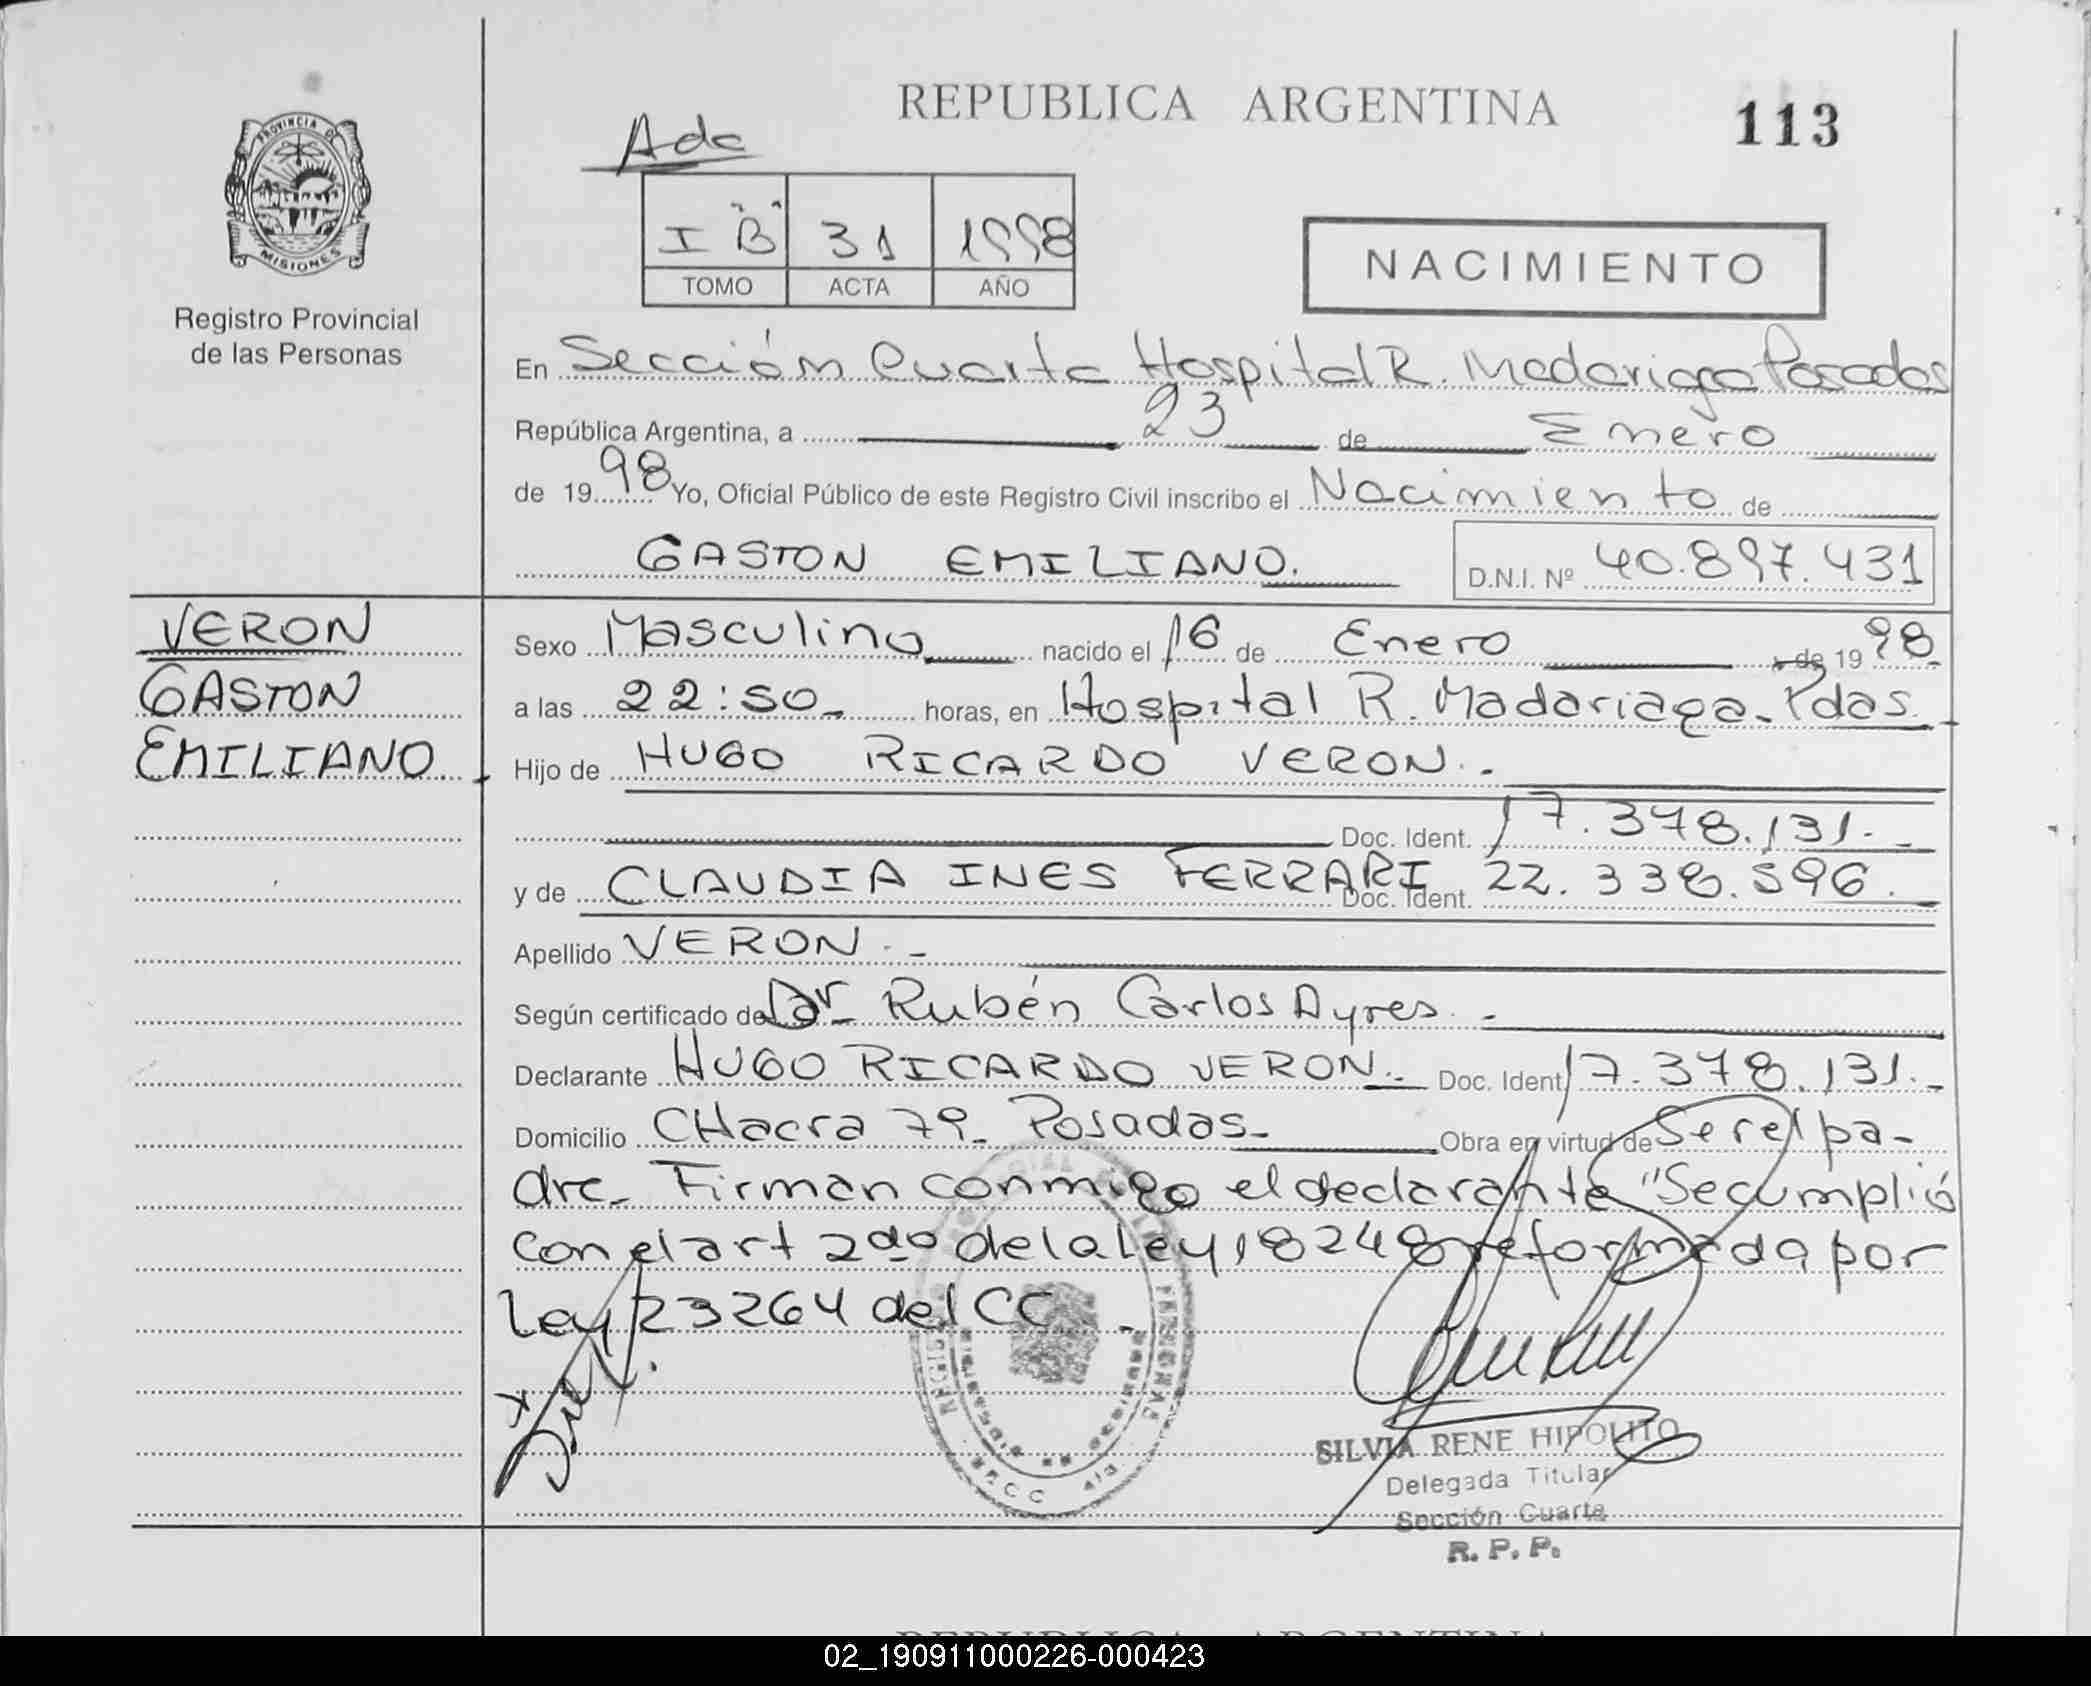 REPUBLICA ARGENTINA
113
Adc
PROVINCIA DE
MISIONES
Registro Provincial
de las Personas
I "B" 31 1998
TOMO ACTA AÑO
NACIMIENTO
En Sección Cuarta Hospital R. Madariaga Posadas
República Argentina, a 23 de Enero
de 1998 Yo, Oficial Público de este Registro Civil inscribo el Nacimiento de
GASTON EMILIANO.
D.N.I. Nº 40.897.431
VERON
GASTON
EMILIANO.
Sexo Masculino nacido el 16 de Enero de 1998.
a las 22:50 horas, en Hospital R. Madariaga. Pdas.
Hijo de HUGO RICARDO VERON.-
Doc. Ident. 17.378.131.-
y de CLAUDIA INES FERRARI Doc. Ident. 22.338.596.
Apellido VERON.-
Según certificado de Dr Rubén Carlos Ayres.-
Declarante HUGO RICARDO VERON.- Doc. Ident 17.378.131.-
Domicilio CHacra 79- Posadas- Obra en virtud de Ser el pa-
dre- Firman conmigo el declarante "Se cumplió
con el art 2do de la Ley 18248 reformada por
Ley 23264 del CC.
SILVIA RENE HIPOLITO
Delegada Titular
Sección Cuarta
R. P. P.
REPUBLICA ARGENTINA
02_190911000226-000423